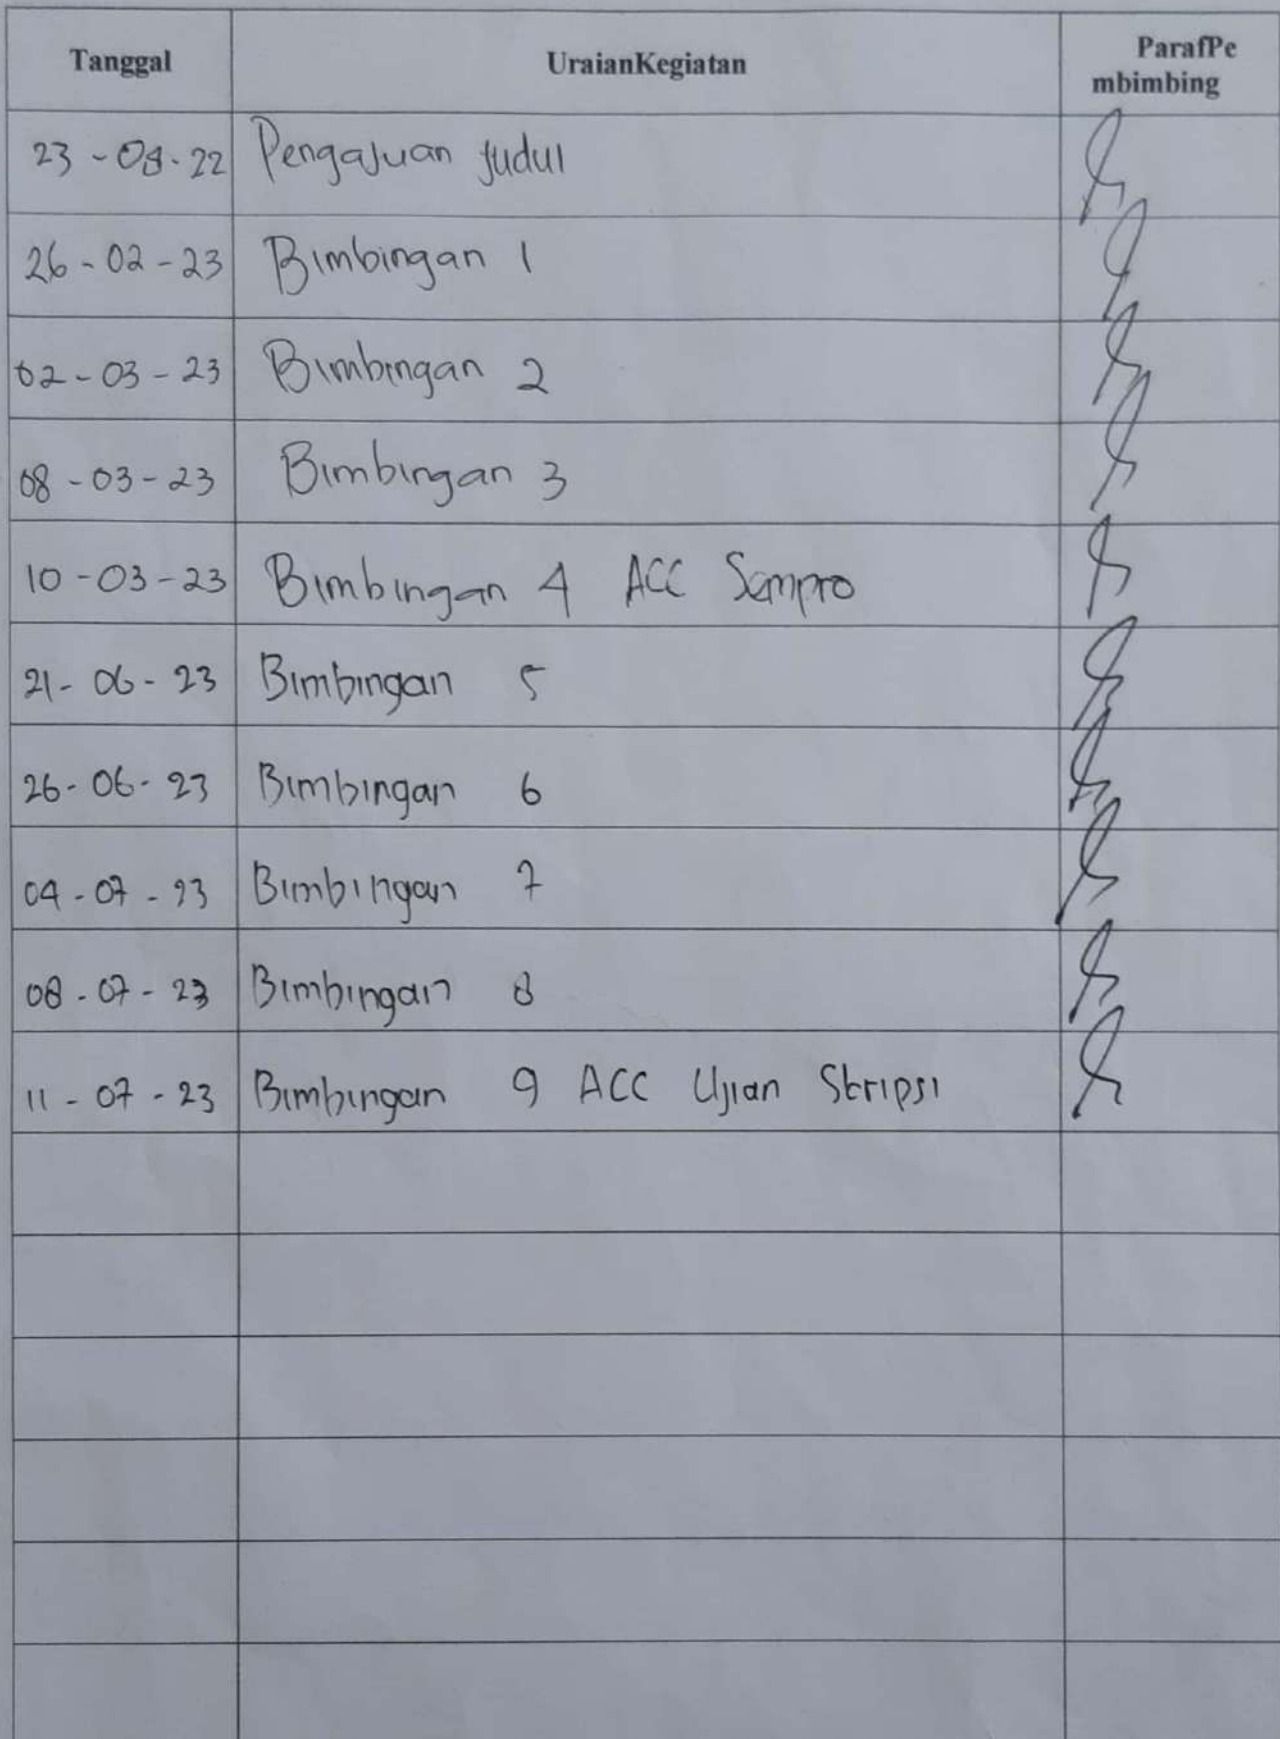 Tanggal UraianKegiatan ParafPe
mbimbing
23-08-22 Pengajuan Judul
26-02-23 Bimbingan 1
02-03-23 Bimbingan 2
08-03-23 Bimbingan 3
10-03-23 Bimbingan 4 ACC Sempro
21-06-23 Bimbingan 5
26-06-23 Bimbingan 6
04-07-23 Bimbingan 7
08-07-23 Bimbingan 8
11-07-23 Bimbingan 9 ACC Ujian Skripsi